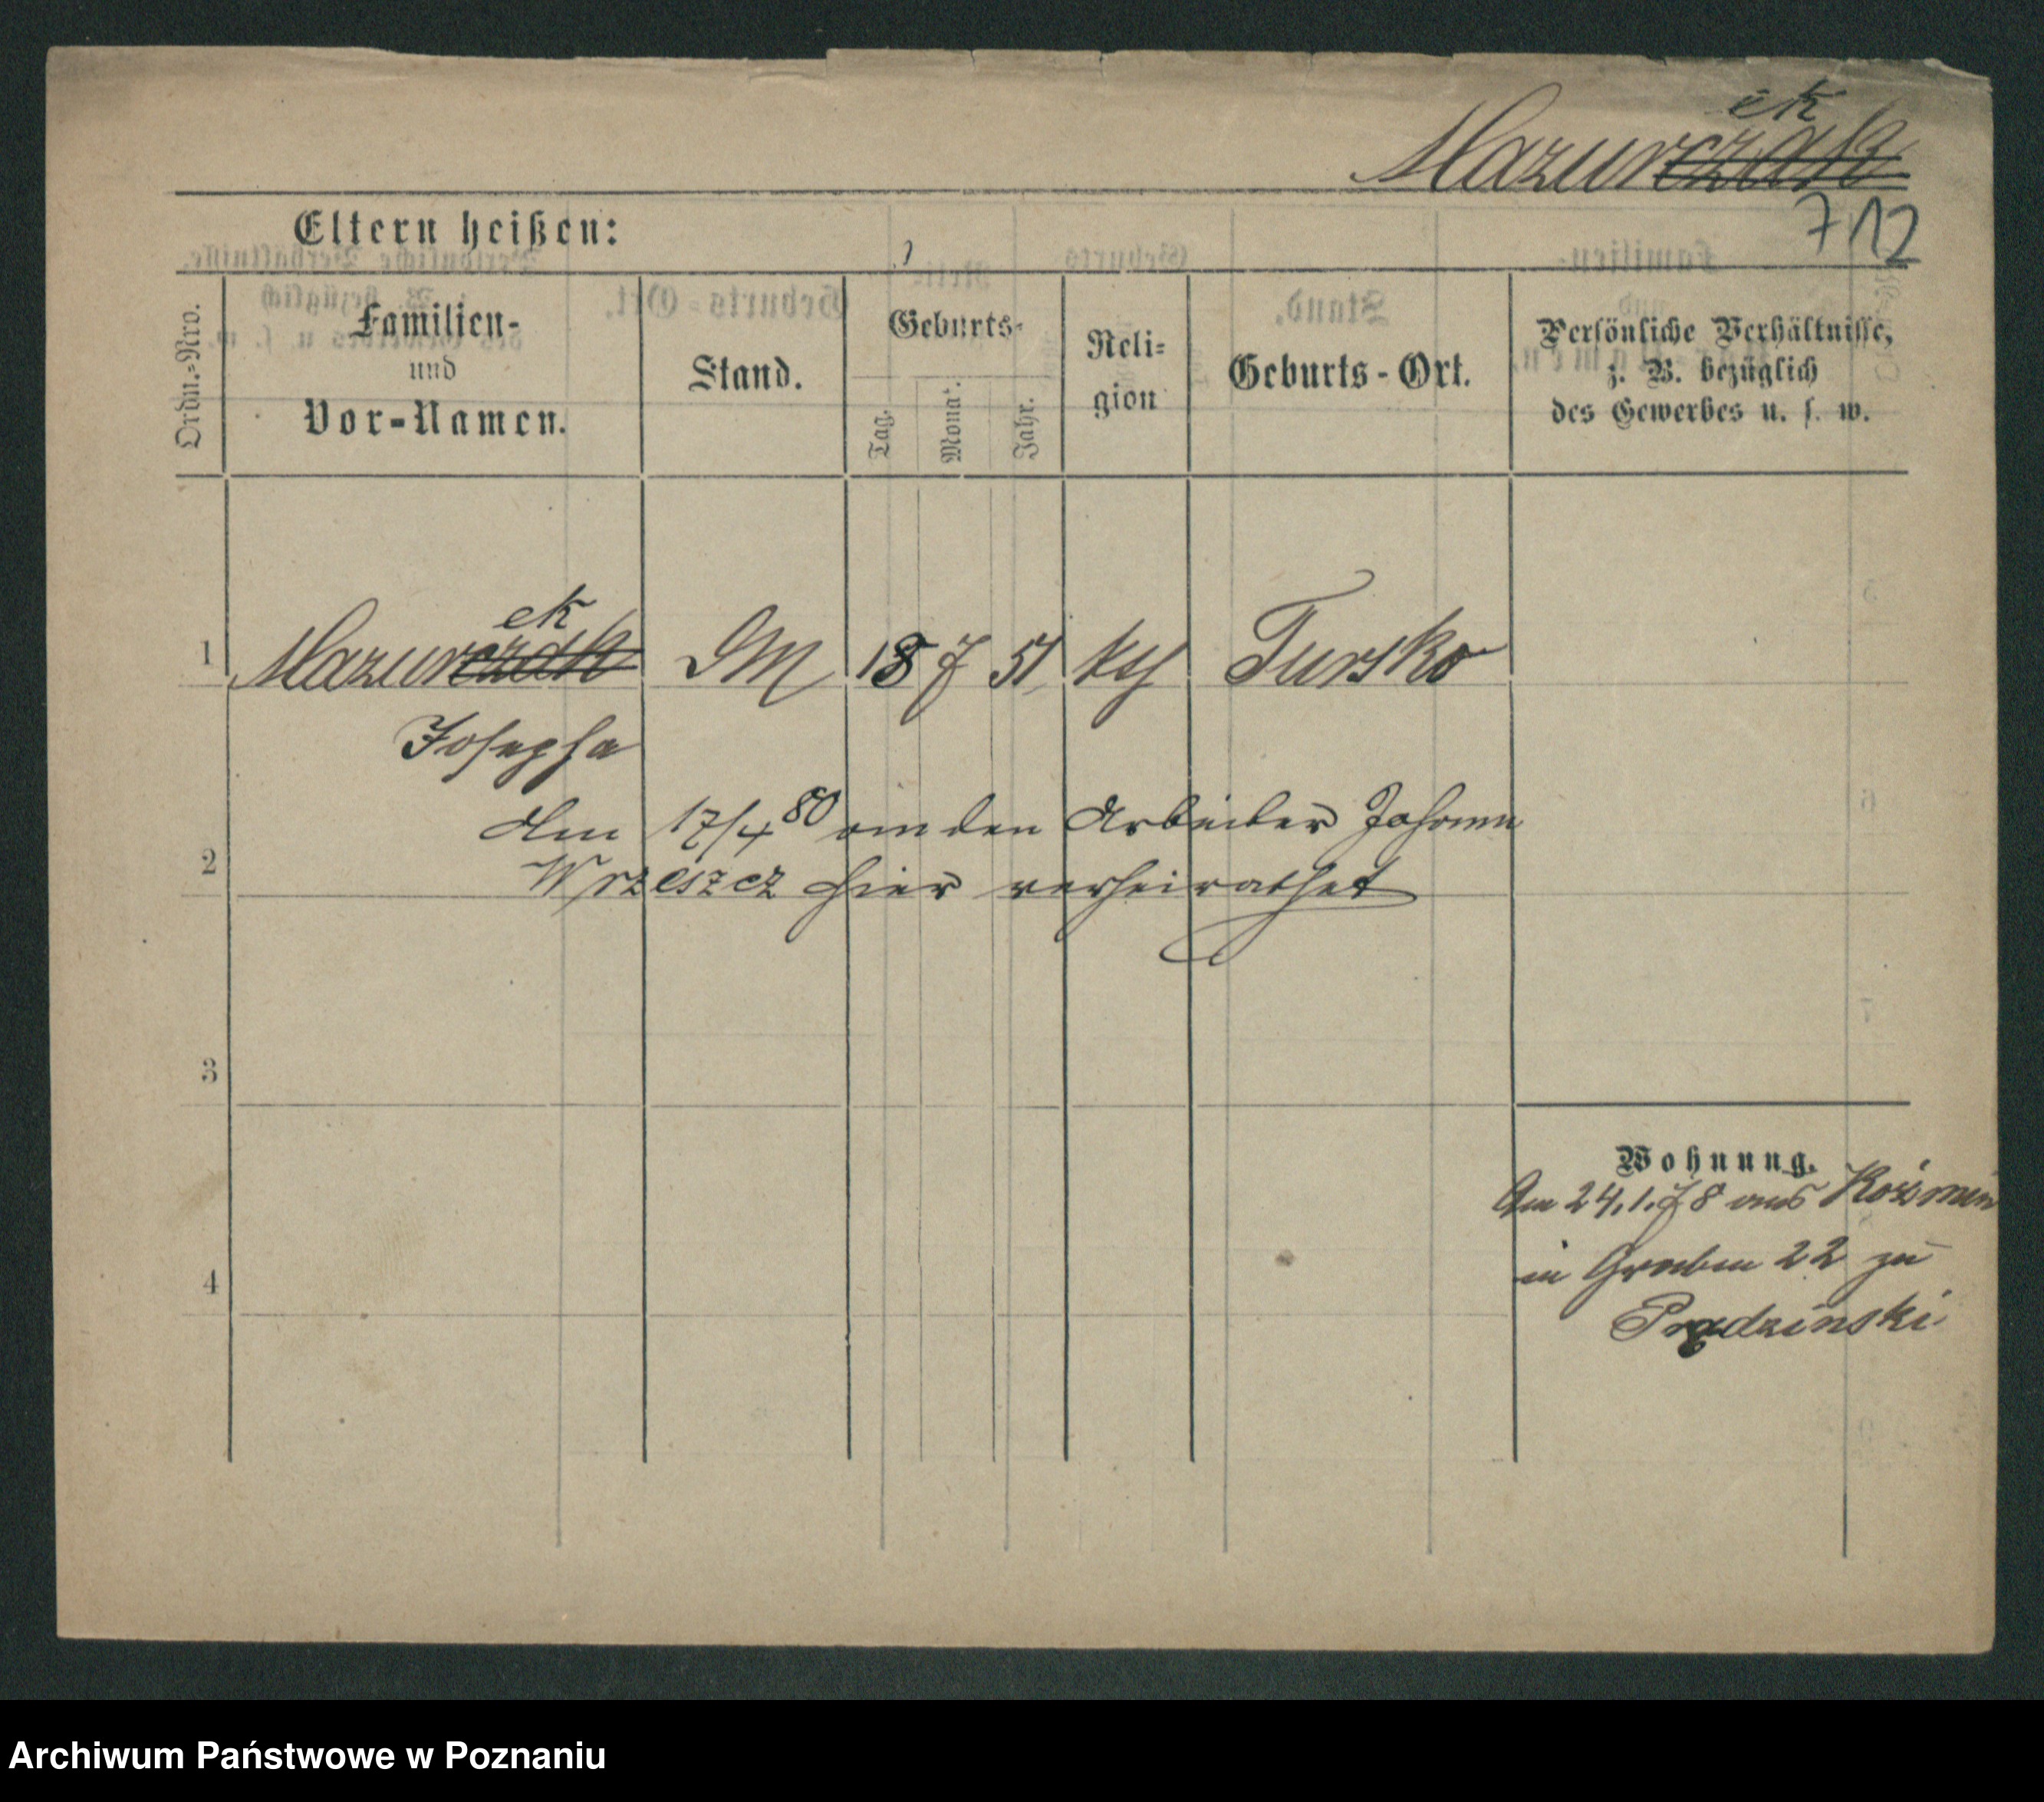 ek
Mazurczak
712
Eltern heißen:
Ordn.-Nro.
Familien-
und
Vor-Namen.
Stand.
Geburts-
Tag.
Monat.
Jahr.
Reli-
gion
Geburts-Ort.
Persönliche Verhältnisse,
z. B. bezüglich
des Gewerbes u. s. w.
ek
1 Mazurczak DM 18 7 51 kth Tursko
Josepha
Am 17/4 80 an den Arbeiter Johann
2 Wrzeszcz hier verheirathet
3
Wohnung.
Am 24.1.78 aus Kozmin
4 in Graben 22 zu
Prądzinski
Archiwum Państwowe w Poznaniu